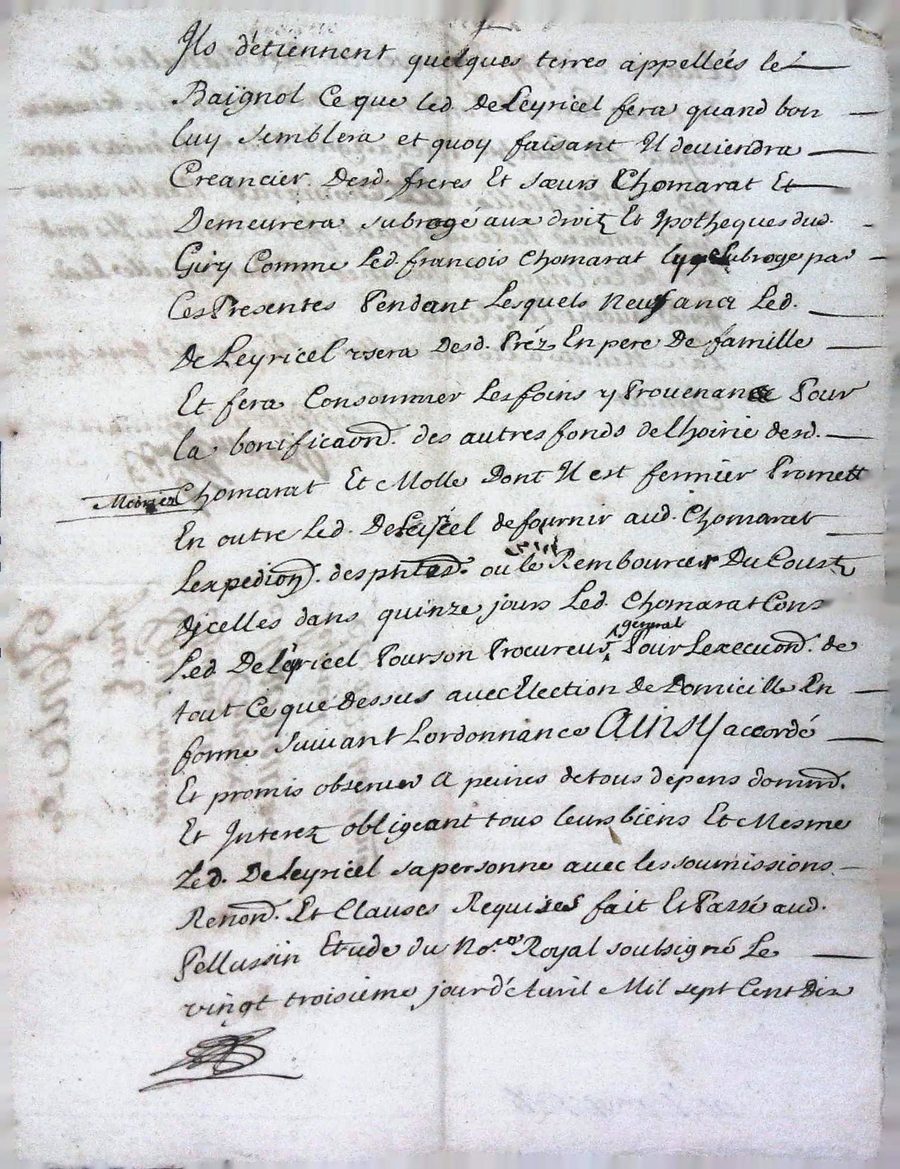 Ils d'etiennent quelques terres appellées le
Baignol Ce que led. deLeyricel fera quand bon
luy Semblera et quoy faisant Il deviendra
Creancier desd. freres Et sœurs Chomarat Et
Demeurera subrogé aux droitz Et Ipotheques dud.
Giry Comme Led. francois Chomarat Subroge par
Ces Presentes Pendant Lesquels Neuf ancz Led.
De Leyricel usera Desd. Préz En pere De famille
Et fera Consommer Les foins y Provenancz Pour
la bonificaōn. des autres fonds de lhoirie desd.
Chomarat Et Molle Dont Il est fermier Promett
En outre Led. De de fournir aud. Chomarat
Lexpediōn. des pntes. ou le Rembourcer Du Coust
Dicelles dans quinze jours Led. Chomarat Cons
Led. De Leyricel Pour son Procureur general Pour Lexecuōn. de
tout Ce que Dessus avec Election de Domicille En
forme Suivant Lordonnance Ainsy accordé
Et promis observer A peines de tous depens domm̄.
Et Interez obligeant tous leurs biens Et Mesme
Led. De Leyricel sa personne avec les soumissions
Renōn. Et Clauses Requises fait Et Passé aud.
Pellussin Etude du No.re Royal soubsigné Le
vingt troisieme jour d'Avril Mil sept Cent Dix